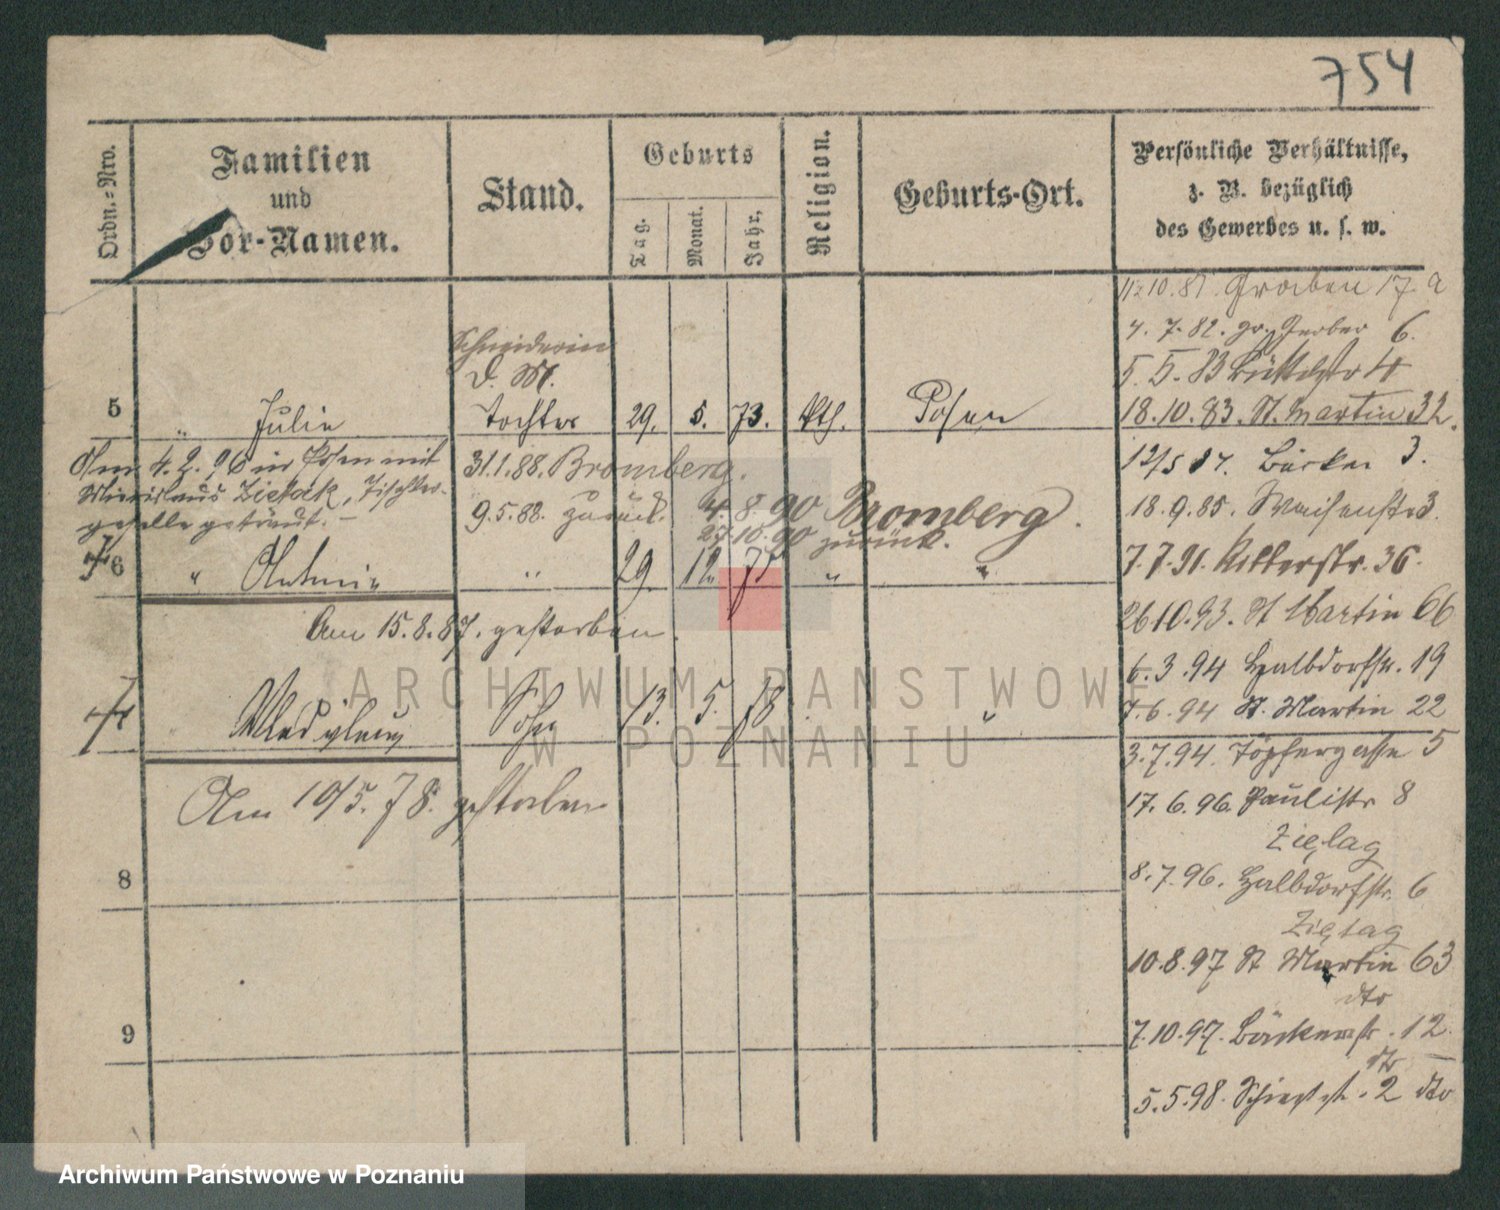 754
Ordn.-Nro.
Familien
und
Vor-Namen.
Stand.
Geburts
Tag.
Monat.
Jahr,
Religion.
Geburts-Ort.
Persönliche Verhältnisse,
z. B. bezüglich
des Gewerbes u. s. w.
11.10.81. Graben 17a
4. 7. 82. gr. Gerber 6.
Schneiderin
d. M.
5. 5. 83 Büttelstr 4
5 " Julie Tochter 29. 5. 73. kth. Posen
18.10.83. St. Martin 32.
Am 4. 2. 96 in Posen mit
31.1.88. Bromberg.
12/5 87. Bäcker 3.
Tischler-
geselle getraut. –
9.5.88. zurück.
4. 8. 90 Bromberg.
18.9.85. Waisenstr 3.
27.10.90 zurück.
6 " Antonie " 29. 12. 75 " "
7.7.91. Ritterstr. 36.
Am 15.8.87. gestorben.
26.10.93. St Martin 66
6.3.94 Halbdorfstr. 19
7 Sohn 13. 5. 78 "
7.6.94 St. Martin 22
3.7.94. Töpfergasse 5
Am 10/5. 78. gestorben
17. 6. 96. Paulistr 8
Zięlag
8
8.7.96. Halbdorfstr. 6
Zięlag
10.8.97 St Martin 63
dto
9
7.10.97. Bäckerstr. 12
dto
5.5.98. Schießstr. 2 dto
ARCHIWUM PAŃSTWOWE
W POZNANIU
Archiwum Państwowe w Poznaniu